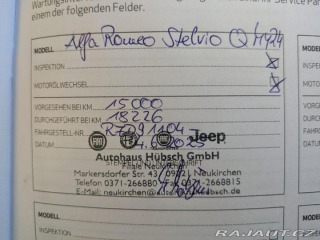 Wartungsinter
Service Par
einem der folgenden Felder.
MODELL Alfa Romeo Stelvio Q MY24
INSPEKTION
MOTORÖLWECHSEL
VORGESEHEN BEI KM 15000
DURCHGEFÜHRT BEI KM 18226
FAHRGESTELL-NR. R7D91104
DATUM 4.6.2025
Jeep
Autohaus Hübsch GmbH
Filiale Neukirchen
Markersdorfer Str. 43/09221 Neukirchen
Telefon 0371-266880 Fax 0371-2668815
E-Mail: neukirchen@autohaus-huebsch.de
MODELL
MODELL
INSPEKTION
INSPEKTION
RAJAUT.CZ